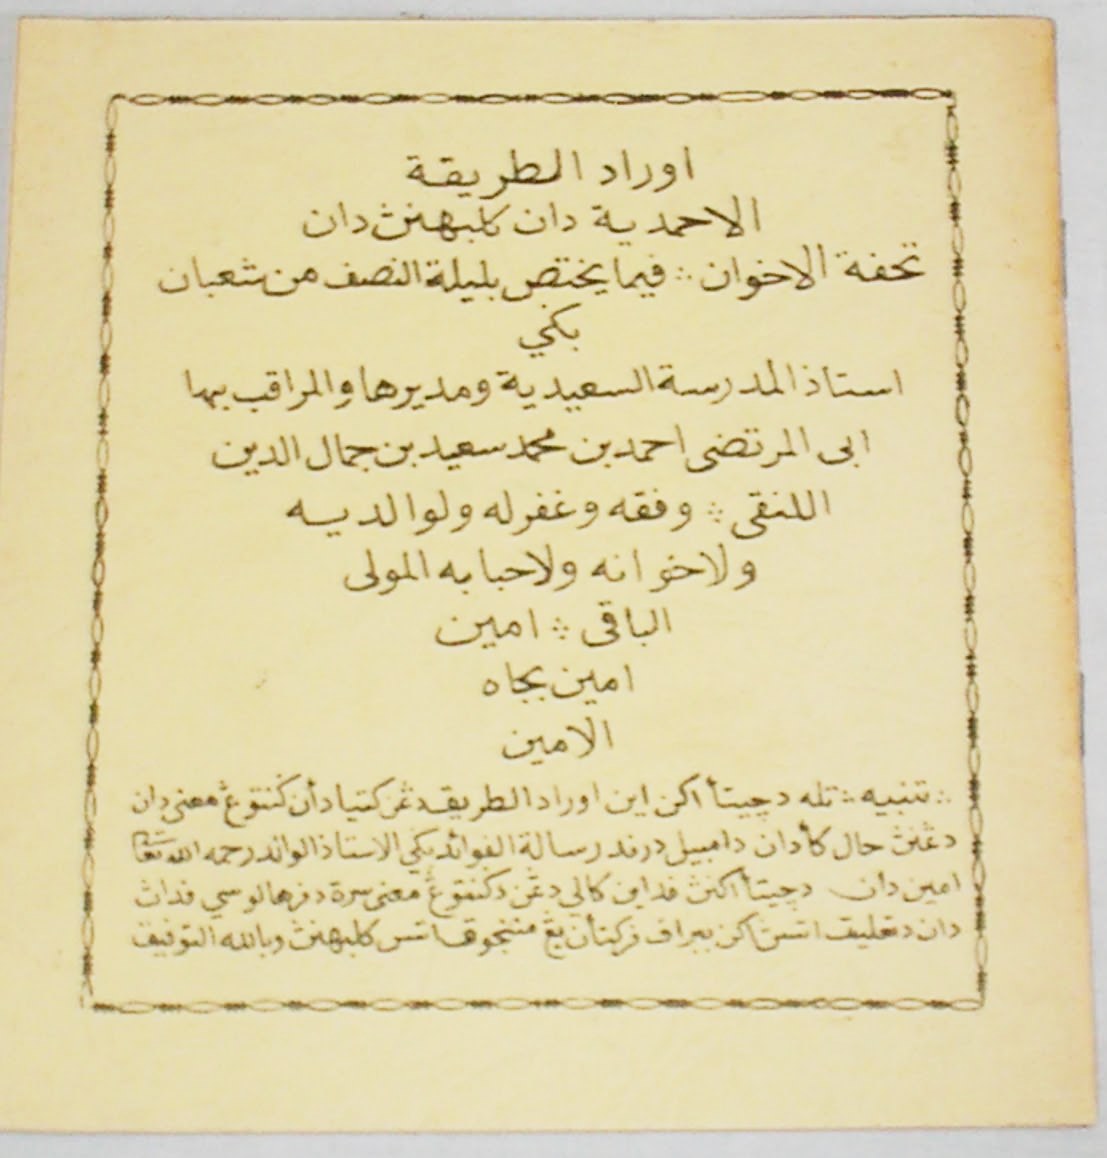 اوراد الطريقة
الاحمدية دان كلبيهنڽ دان
تحفة الاخوان ؞ فيما يختص بليلة النصف من شعبان
بڬي
استاذ المدرسة السعيدية ومديرها والمراقب بها
ابى المرتضى احمد بن محمد سعيد بن جمال الدين
اللنقى ؞ وفقه وغفر له ولوالديه
ولاخوانه ولاحبابه المولى
الباقى ؞ امين
امين بجاه
الامين
؞ تنبيه ؞ تله دچيتأ اكن اين اوراد الطريقة دڠن كتيادأن كنتوڠ معنى دان
دڠنڽ حال كأدان دامبيل درفد رسالة الفوائد بڬي الاستاذ الوالد رحمه الله تعا
امين دان دچيتأ اكنڽ فد اين كالي دڠن دكنتوڠ معنى سرة دفرهالوسي فداڽ
دان دتعليقـ اتسڽ اكن ببراف فركتأن يڠ منونجوق اتس كلبيهنڽ وبالله التوفيق